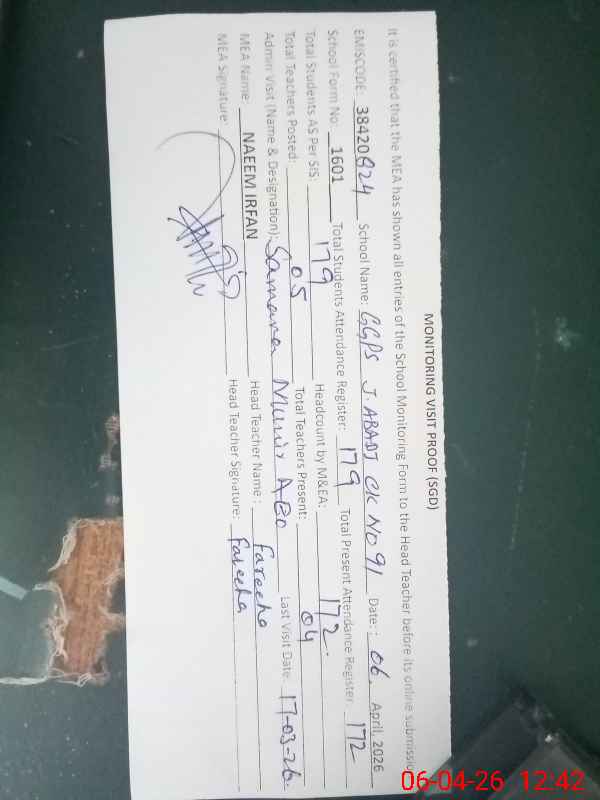 MONITORING VISIT PROOF (SGD)
It is certified that the MEA has shown all entries of the School Monitoring Form to the Head Teacher before its online submissio
EMISCODE: 38420824 School Name: GGPS J.ABADI CK NO 91 Date: : 06. April, 2026
School Form No: 1601 Total Students Attendance Register: 179 Total Present Attendance Register: 172
Total Students AS Per SIS: 179 Headcount by M&EA: 172.
Total Teachers Posted: 05 Total Teachers Present: 04
Admin Visit (Name & Designation): Samana Munir AEO Last Visit Date: 17-03-26.
MEA Name: NAEEM IRFAN Head Teacher Name : Fareeha
MEA Signature: Head Teacher Signature: Fareeha
06-04-26 12:42